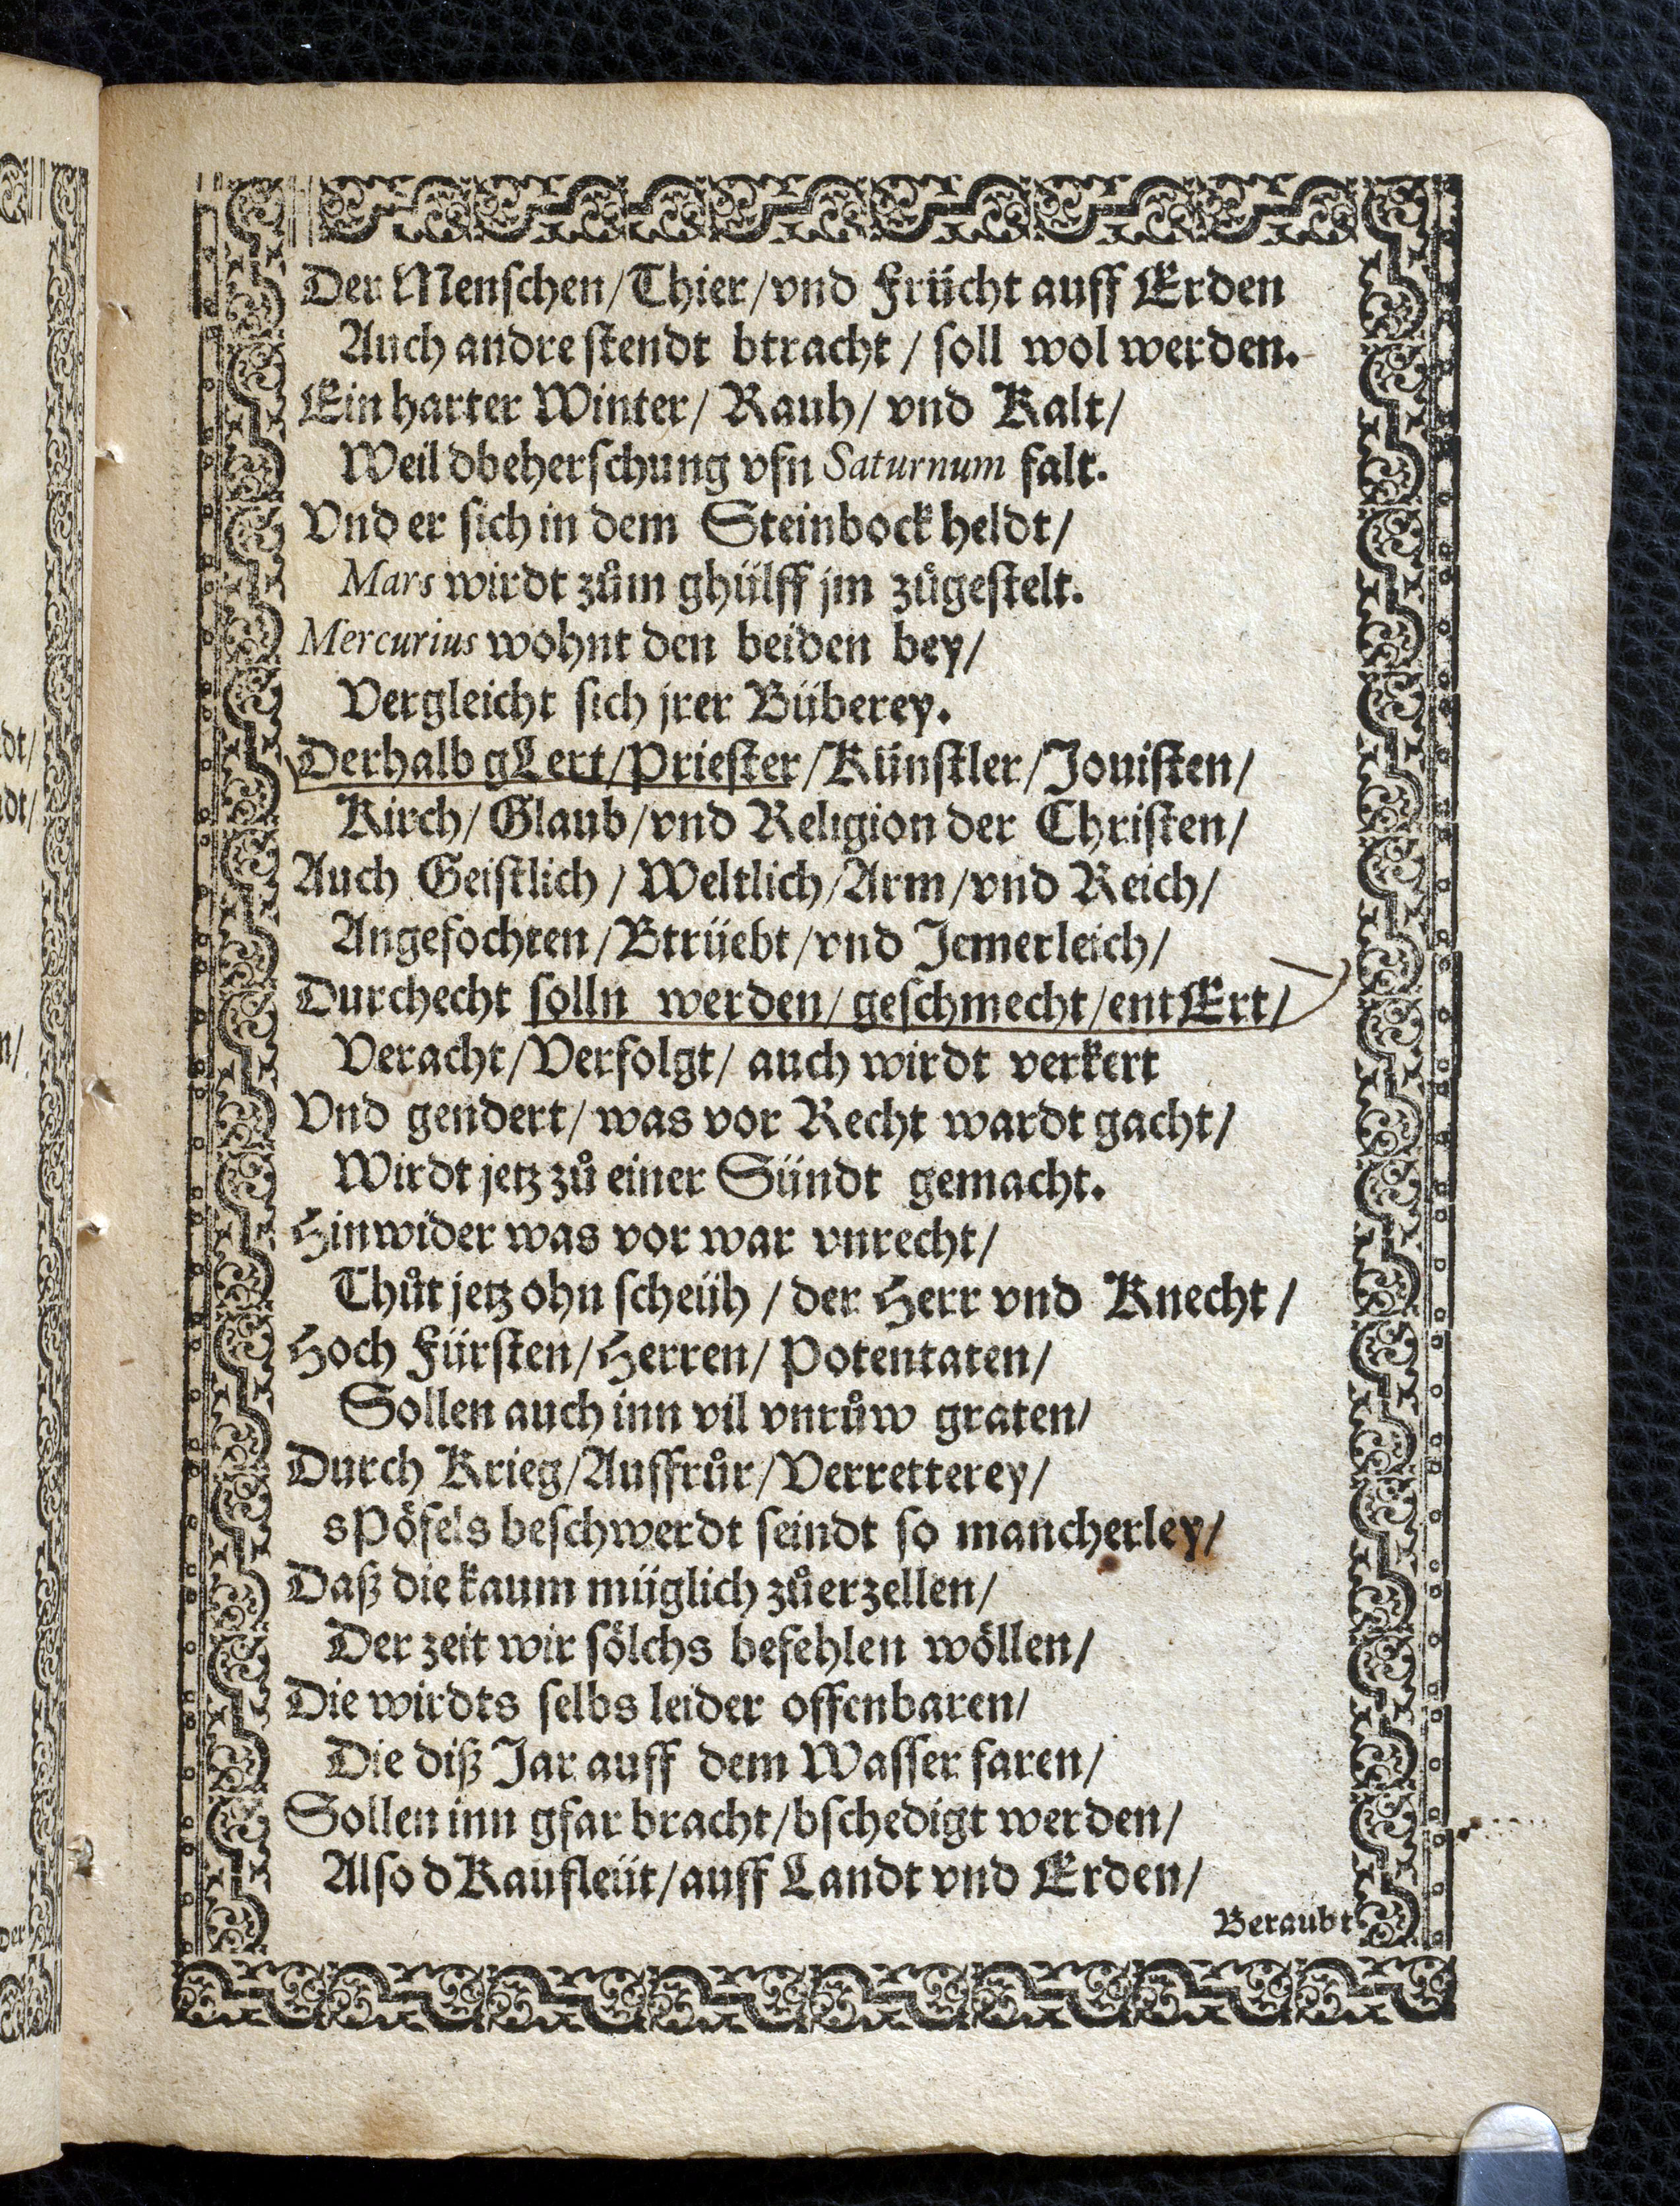 Der Menschen/Thier/vnd Frücht auff Erden
Auch andre stendt btracht / soll wol werden.
Ein harter Winter/ Rauh/ vnd Kalt/
Weil dbeherschung vfn Saturnum falt.
Vnd er sich in dem Steinbock heldt/
Mars wirdt zům ghülff jm zůgestelt.
Mercurius wohnt den beiden bey/
Vergleicht sich jrer Büberey.
Derhalb gLert/Priester/Künstler/Jouisten/
Kirch/ Glaub/vnd Religion der Christen/
Auch Geistlich / Weltlich/Arm/vnd Reich/
Angefochten/Btrüebt/vnd Jemerleich/
Durchecht solln werden/ geschmecht/entErt/
Veracht/Verfolgt/ auch wirdt verkert
Vnd gendert/ was vor Recht wardt gacht/
Wirdt jetz zů einer Sündt gemacht.
Hinwider was vor war vnrecht/
Thůt jetz ohn scheüh / der Herr vnd Knecht/
Hoch Fürsten/Herren/ Potentaten/
Sollen auch inn vil vnrůw graten/
Durch Krieg/Auffrůr/Verretterey/
sPöfels beschwerdt seindt so mancherley/
Daß die kaum müglich zůerzellen/
Der zeit wir sölchs befehlen wöllen/
Die wirdts selbs leider offenbaren/
Die diß Jar auff dem Wasser faren/
Sollen inn gfar bracht/bschedigt werden/
Also dKaufleüt/auff Landt vnd Erden/
Beraubt